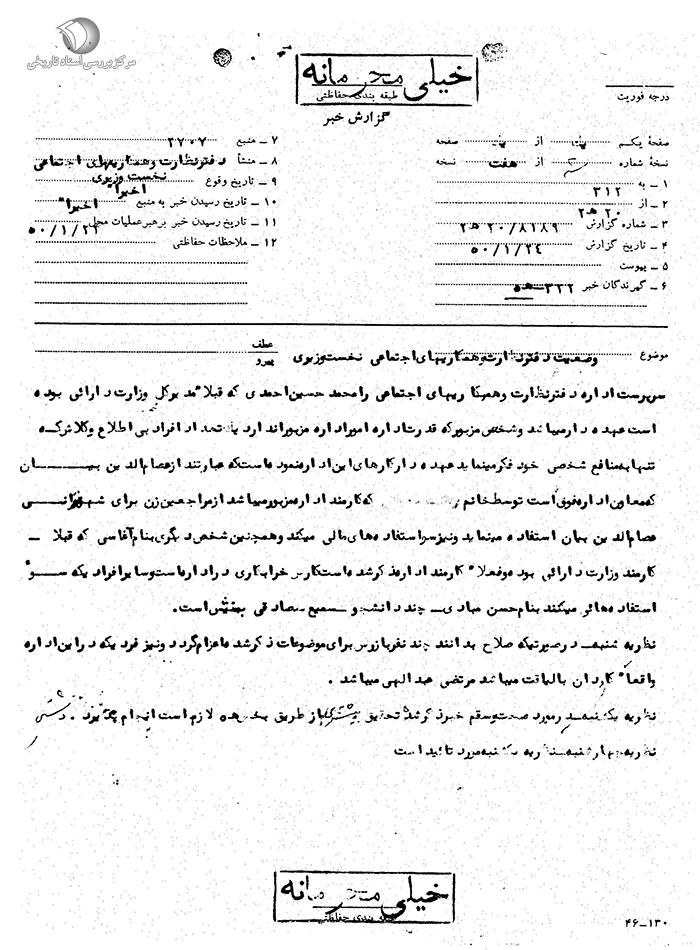 مرکز بررسی اسناد تاریخی
خیلی محرمانه
طبقه بندی حفاظتی
گزارش خبر
درجه فوریت
صفحه یکم از صفحه
نسخه شماره از هفت نسخه
۱ ــ به ۳۱۲
۲ ــ از ۲۰ هـ ۲
۳ ــ شماره گزارش ۲۰/۸۱۸۹ هـ ۲
۴ ــ تاریخ گزارش ۵۰/۱/۲۴
۵ ــ پیوست
۶ ــ گیرندگان خبر ۳۲۲
۷ ــ منبع ۲۷۰۷
۸ ــ منشأ دفتر نظارت و همکاریهای اجتماعی نخست وزیری
۹ ــ تاریخ وقوع اخیرا
۱۰ ــ تاریخ رسیدن خبر به منبع اخیرا
۱۱ ــ تاریخ رسیدن خبر برهبر عملیات محل ۵۰/۱/۲۲
۱۲ ــ ملاحظات حفاظتی
موضوع وضعیت دفتر نظارت و همکاریهای اجتماعی نخست وزیری عطف پیرو
سرپرست اداره دفتر نظارت و همکاریهای اجتماعی را محمد حسین احمدی که قبلا مدیر کل وزارت دارائی بوده
است عهده دار میباشد و شخص مزبور که قدرت اداره امور اداره مزبور را ندارد با تعداد افراد بی اطلاع و کلاش که
تنها به منافع شخصی خود فکر مینماید عهده دار کارهای این اداره نموده است که عبارتند از عصام الدین بیان
که معاون اداره فوق است توسط خانم که کارمند اداره مزبور میباشد از مراجعین زن برای شهوترانی
عصام الدین بیان استفاده مینماید و نیز سوء استفاده های مالی میکند و همچنین شخص دیگری بنام آغاسی که قبلا ــ
کارمند وزارت دارائی بوده و فعلا کارمند اداره ذکر شده است کارش خرابکاری در اداره است و سایر افرادیکه ســوء
استفاده هائی میکنند بنام حسن عبادی ــ چند دانشجو ــ سمیع صادقی است.
نظریه شنبه ــ در صورتیکه صلاح بدانند چند نفر بازرس برای موضوعات ذکر شده اعزام گردد و نیز فردیکه در این اداره
واقعا کاردان با لیاقت میباشد مرتضی عبدالهی میباشد .
نظریه یکشنبه ــ در مورد صحت و سقم خبر ذکر شده تحقیق بیشتری از طریق بخش ۵ هـ لازم است انجام پذیرد . دشتی
نظریه چهارشنبه ــ نظریه یکشنبه مورد تائید است
خیلی محرمانه
طبقه بندی حفاظتی
۴۶ــ۱۳۰